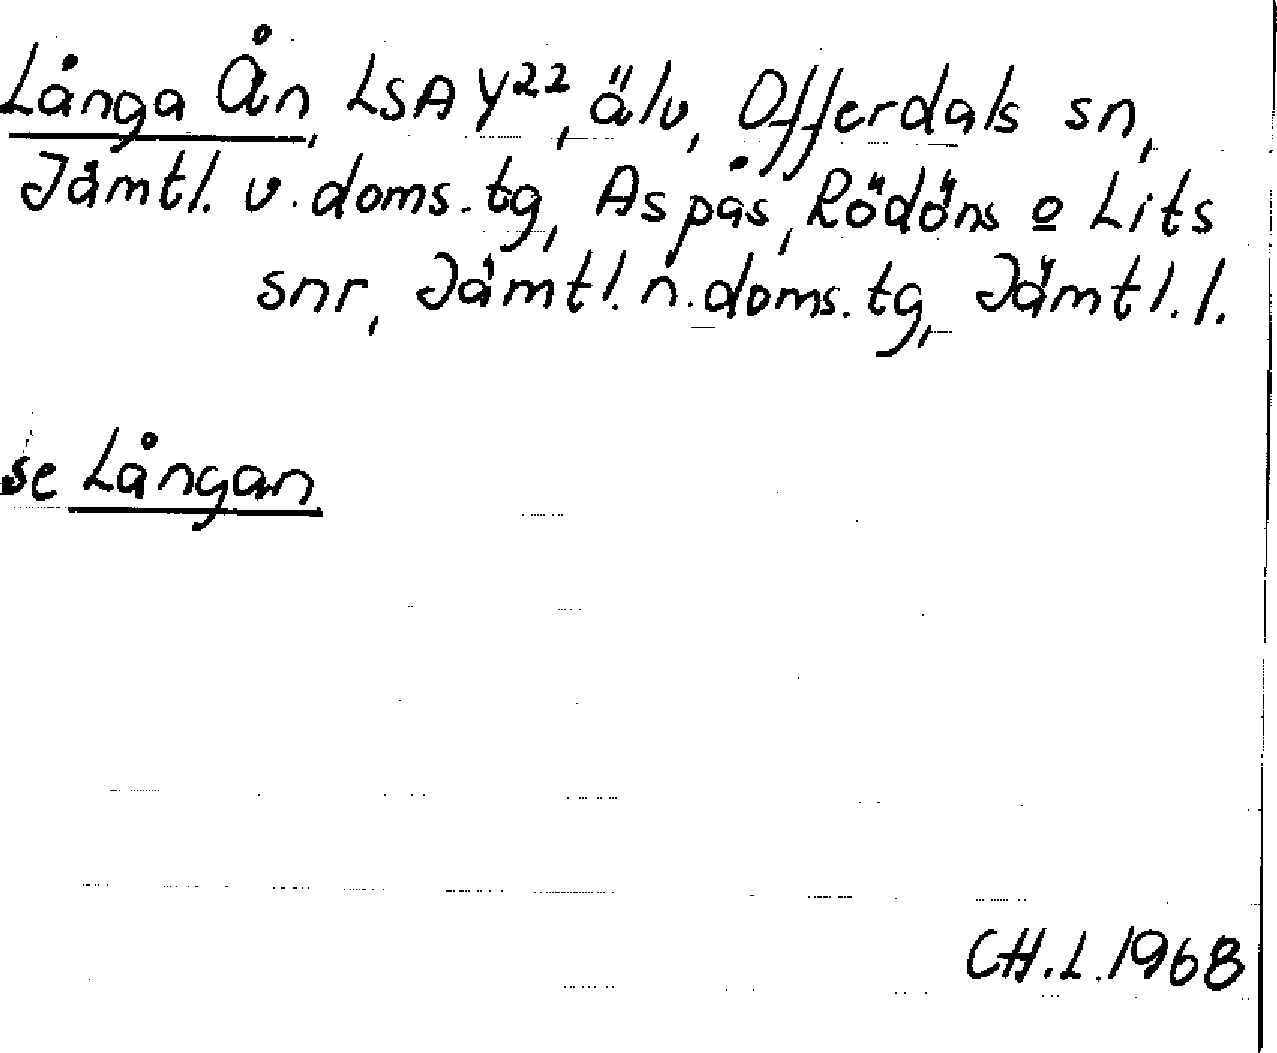 Långa Ån, LSA Y22, älv, Offerdals sn,
Jämtl. v. doms. tg, Aspås, Rödöns o Lits
snr, Jämtl. n. doms. tg, Jämtl. l.
se Långan
CH.L. 1968